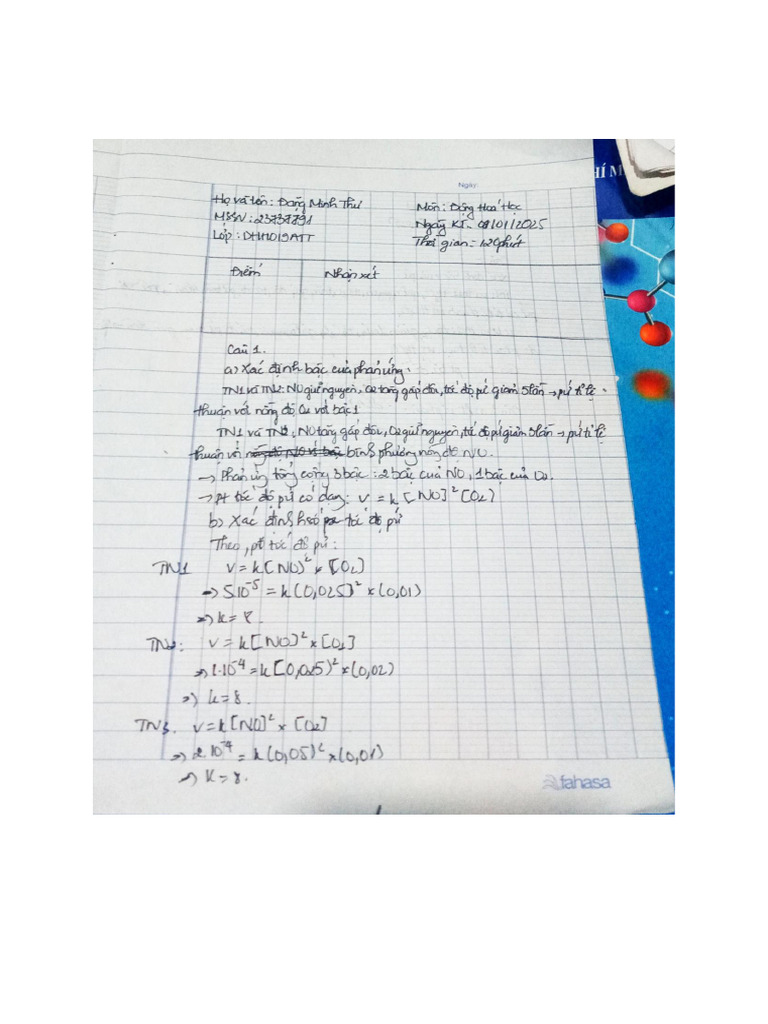 Ngày:
HÍ M
Họ và tên: Đặng Minh Thư
Môn: Động Hoá Học
MSSV: 23737791
Ngày KT: 01/2025
Lớp: DHHO19ATT
Thời gian: 120 phút
Điểm
Nhận xét
Câu 1.
a) Xác định bậc của phản ứng.
TN1 và TN2: NO giữ nguyên, O2 tăng gấp đôi, tốc độ pứ giảm lần → pứ tỉ lệ
thuận với nồng độ O2 với bậc 1
TN1 và TN: NO tăng gấp đôi, O2 giữ nguyên, tốc độ pứ giảm lần → pứ tỉ lệ
thuận với bình phương nồng độ NO.
→ Phản ứng tổng cộng 3 bậc: 2 bậc của NO, 1 bậc của O2.
→ Pt tốc độ pứ có dạng: v = k [NO]² [O2]
b) Xác định số tốc độ pứ
Theo pt tốc độ pứ:
TN1 v = k[NO]² × [O2]
→ 5.10⁻⁵ = k(0,025)² × (0,01)
=> k = 8.
TN2: v = k[NO]² × [O2]
=> 1.10⁻⁴ = k[0,025)² × (0,02)
=) k = 8.
TN3. v = k[NO]² × [O2]
=> 2.10⁻⁴ = k(0,05)² × (0,01)
=) k = 8.
fahasa